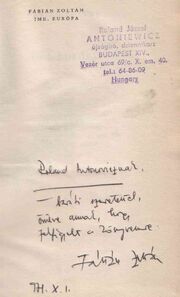 FÁBIÁN ZOLTÁN
IME, EURÓPA
Roland József
ANTONIEWICZ
újságíró, dzsennikarz
BUDAPEST XIV.,
Vezér utca 69/c. X. em. 40.
tel.: 64-86-09
Hungary
Roland Antoniewicznak,
— baráti szeretettel,
örülve annak, hogy
felfigyelt a könyvemre.
Fábián Zoltán
74. X. 1.